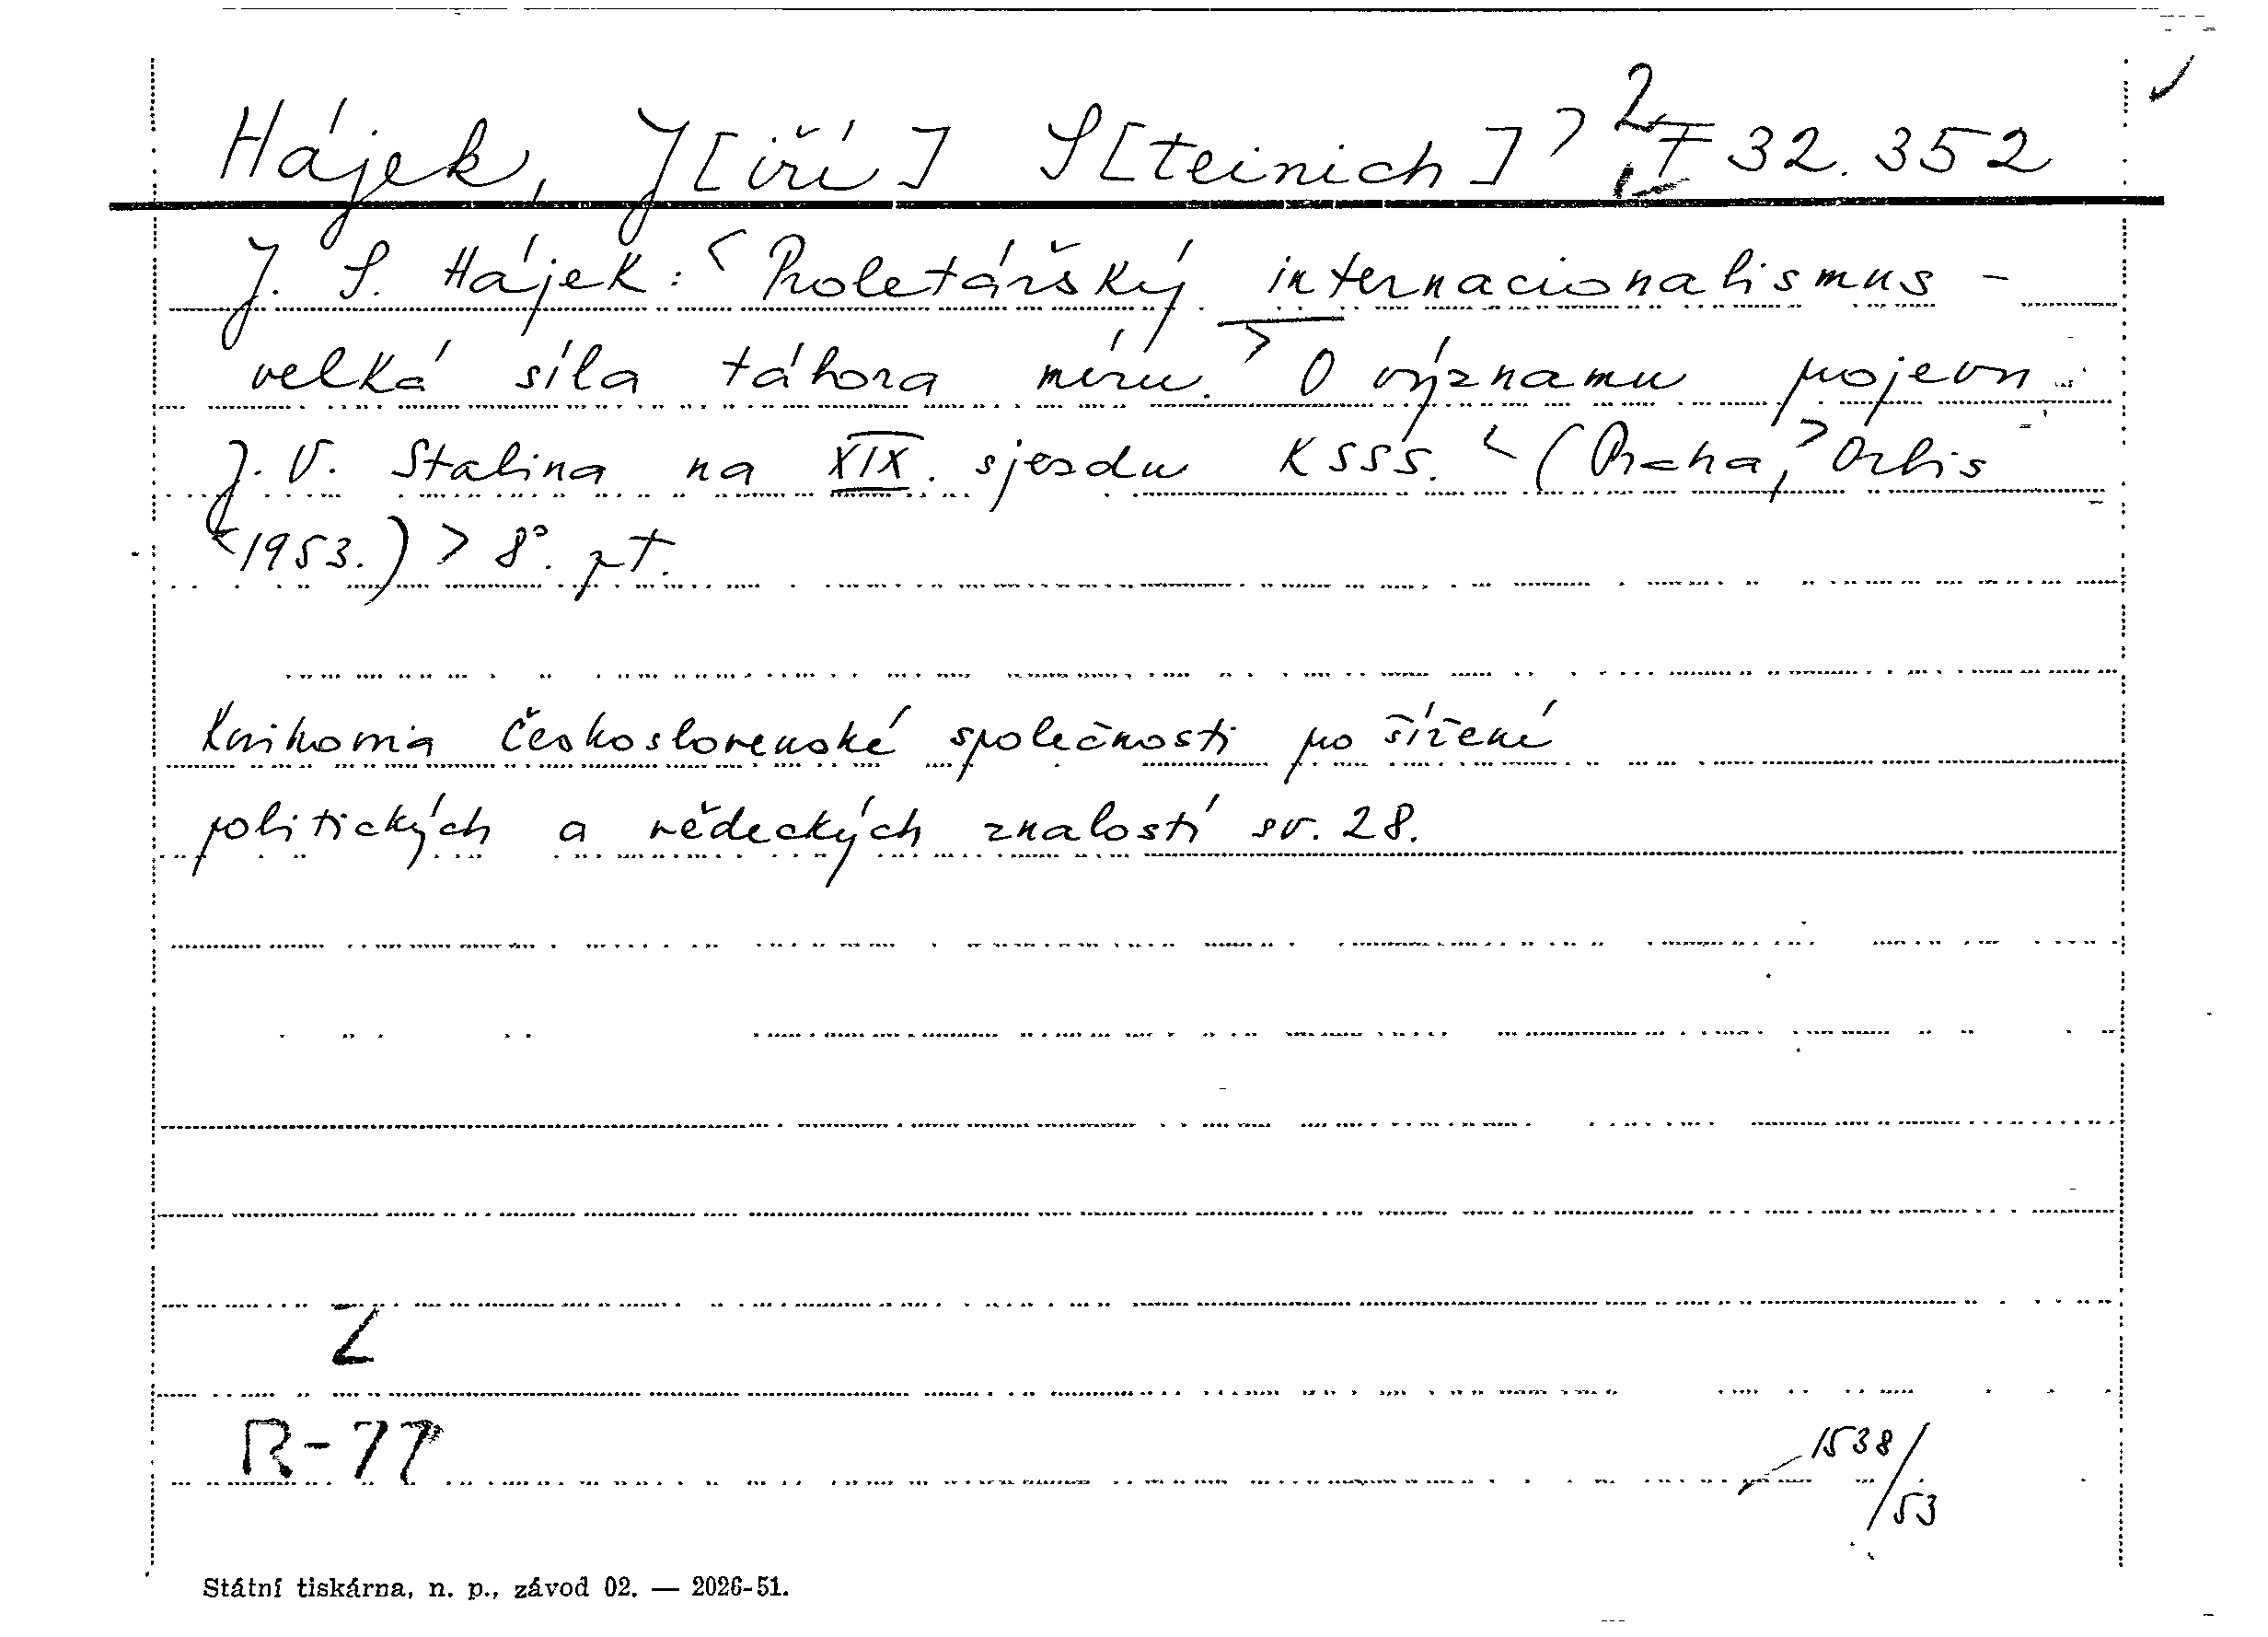 Hájek, J[iří] S[teinich] > 2 F 32.352
J. S. Hájek: < Proletářský internacionalismus -
velká síla tábora míru. > O významu projevu
J. V. Stalina na XIX. sjezdu KSSS. < (Praha, > Orbis
< 1953.) > 8°. pt.
Knihovna Československé společnosti pro šíření
politických a vědeckých znalostí sv. 28.
Z
R-77
1538/53
Státní tiskárna, n. p., závod 02. — 2026-51.